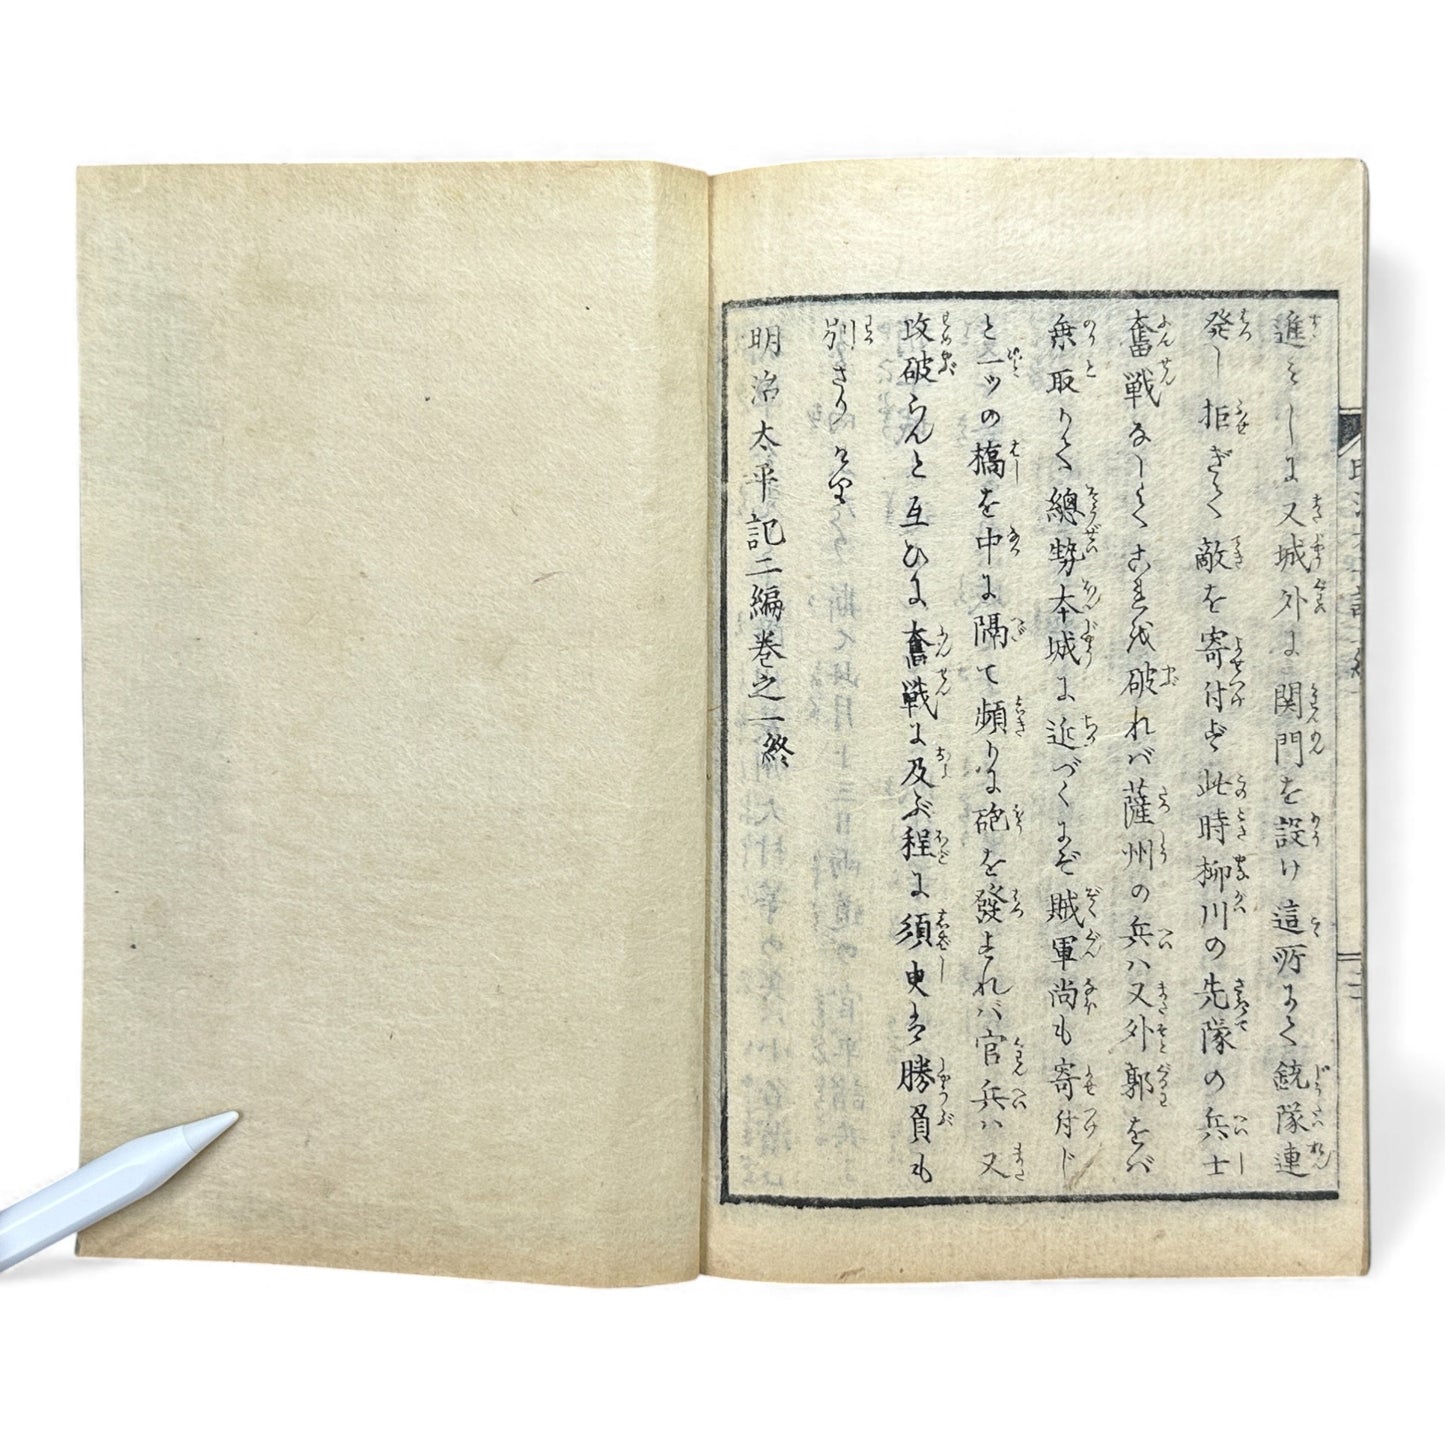 進みしに又城外に関門を設け這所にて銃隊連
発し拒ぎて敵を寄付ず此時柳川の先隊の兵士
奮戦なしてこれを破れバ薩州の兵ハ又外郭をバ
乗取りて總勢本城に近づくにぞ賊軍尚も寄付じ
と一ツの橋を中に隔て頻りに砲を發すれバ官兵ハ又
攻破らんと互ひに奮戦に及ぶ程に須臾は勝負も
別ざりける
明治太平記二編巻之一終